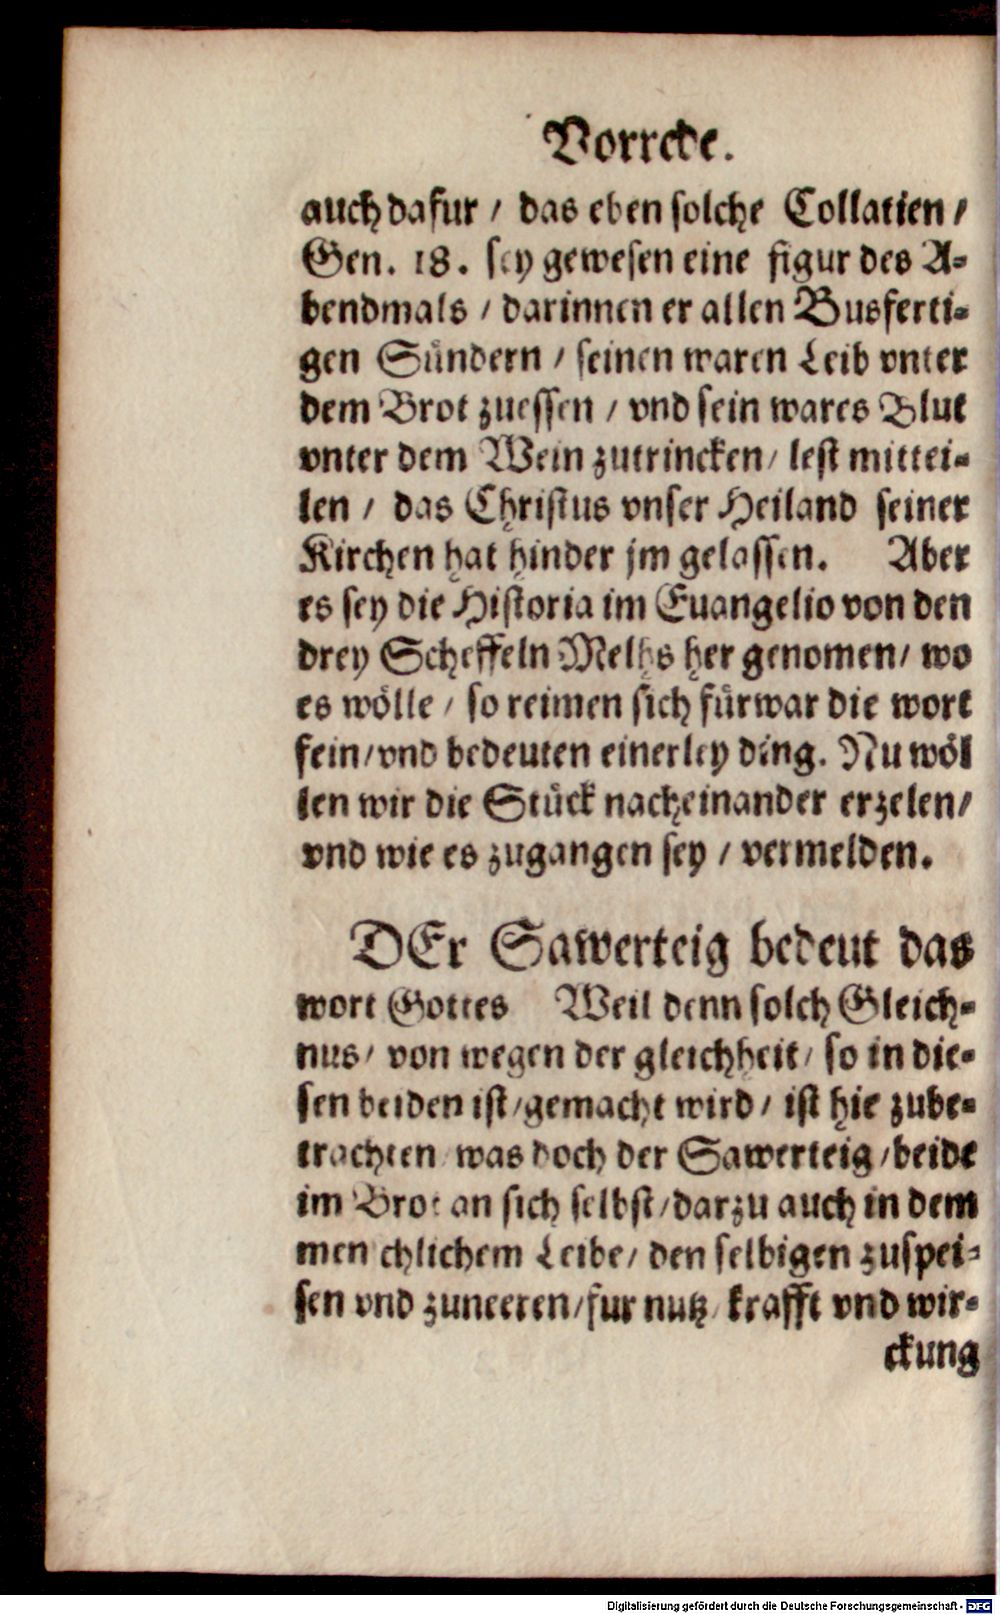 Vorrede.
auch dafur / das eben solche Collatien /
Gen. 18. sey gewesen eine figur des A-
bendmals / darinnen er allen Busferti-
gen Sündern / seinen waren Leib vnter
dem Brot zuessen / vnd sein wares Blut
vnter dem Wein zutrincken / lest mittei-
len / das Christus vnser Heiland seiner
Kirchen hat hinder jm gelassen. Aber
es sey die Historia im Euangelio von den
drey Scheffeln Melhs her genomen / wo
es wölle / so reimen sich fürwar die wort
fein / vnd bedeuten einerley ding. Nu wöl
len wir die Stück nacheinander erzelen /
vnd wie es zugangen sey / vermelden.
DEr Sawerteig bedeut das
wort Gottes Weil denn solch Gleich-
nus / von wegen der gleichheit / so in die-
sen beiden ist / gemacht wird / ist hie zube-
trachten was doch der Sawerteig / beide
im Brot an sich selbst / darzu auch in dem
men chlichem Leibe / den selbigen zuspei-
sen vnd zuneeren / fur nutz / krafft vnd wir-
ckung
Digitalisierung gefördert durch die Deutsche Forschungsgemeinschaft - DFG